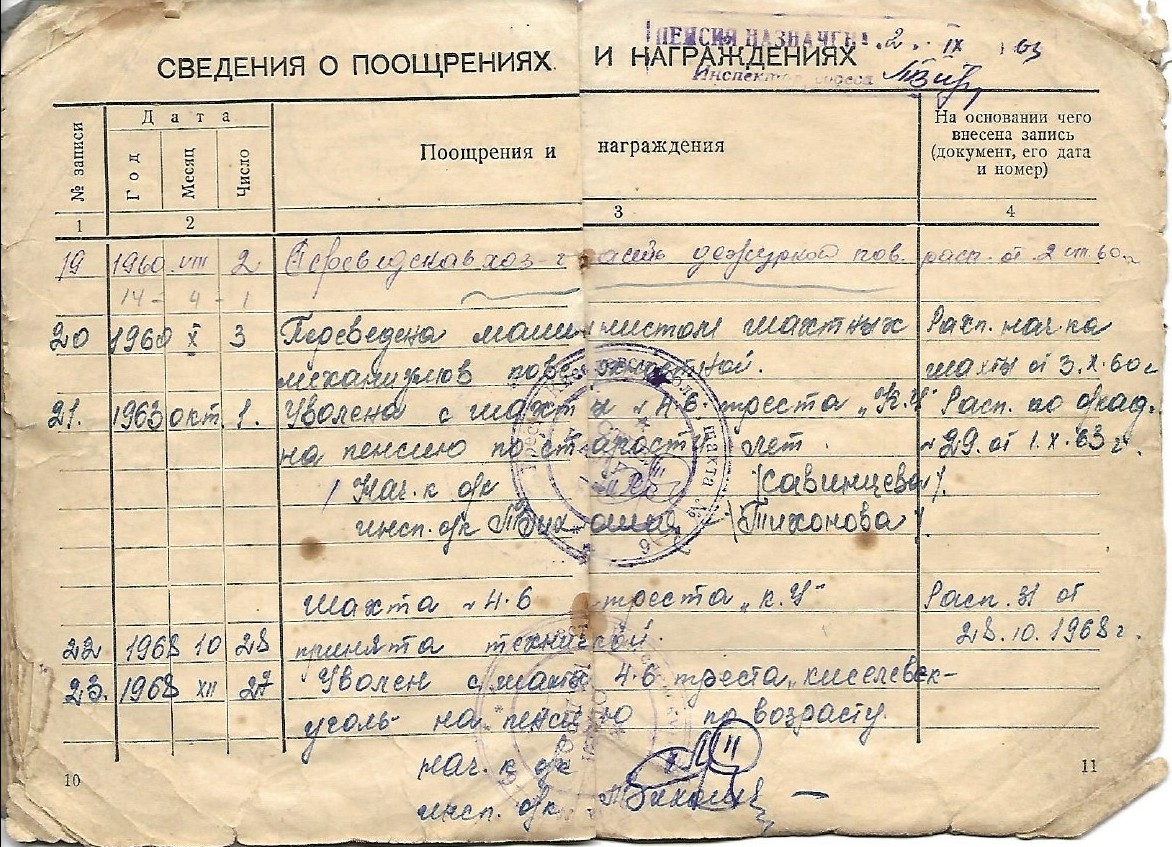 ПЕНСИЯ НАЗНАЧЕНА 2. IX 63
СВЕДЕНИЯ О ПООЩРЕНИЯХ И НАГРАЖДЕНИЯХ
№ записи
Дата
Год
Месяц
Число
Поощрения и награждения
На основании чего
внесена запись
(документ, его дата
и номер)
1 2 3 4
19 1960 VIII 2 Переведена в хоз-часть дежурной пов. расп. от 2 VIII 60г
14 - 4 - 1
20 1960 X 3 Переведена машинистом шахтных Расп. нач-ка
механизмов поверхностной. шахты от 3.X.60г
21. 1963 окт. 1. Уволена с шахты 4-6. треста „К.У" Расп. по
на пенсию по старости лет. 29 от 1.X.63г.
Нач-к о/к (Савинцева).
инсп. о/к (Тихонова)
шахта 4-6 треста „К.У" Расп. 31 от
22 1968 10 28 принята технической. 28.10.1968г.
23. 1968 XII 27 Уволен с шахты 4-6 треста „киселевск-
уголь на пенсию по возрасту.
нач-к о/к
инсп. о/к
10
11